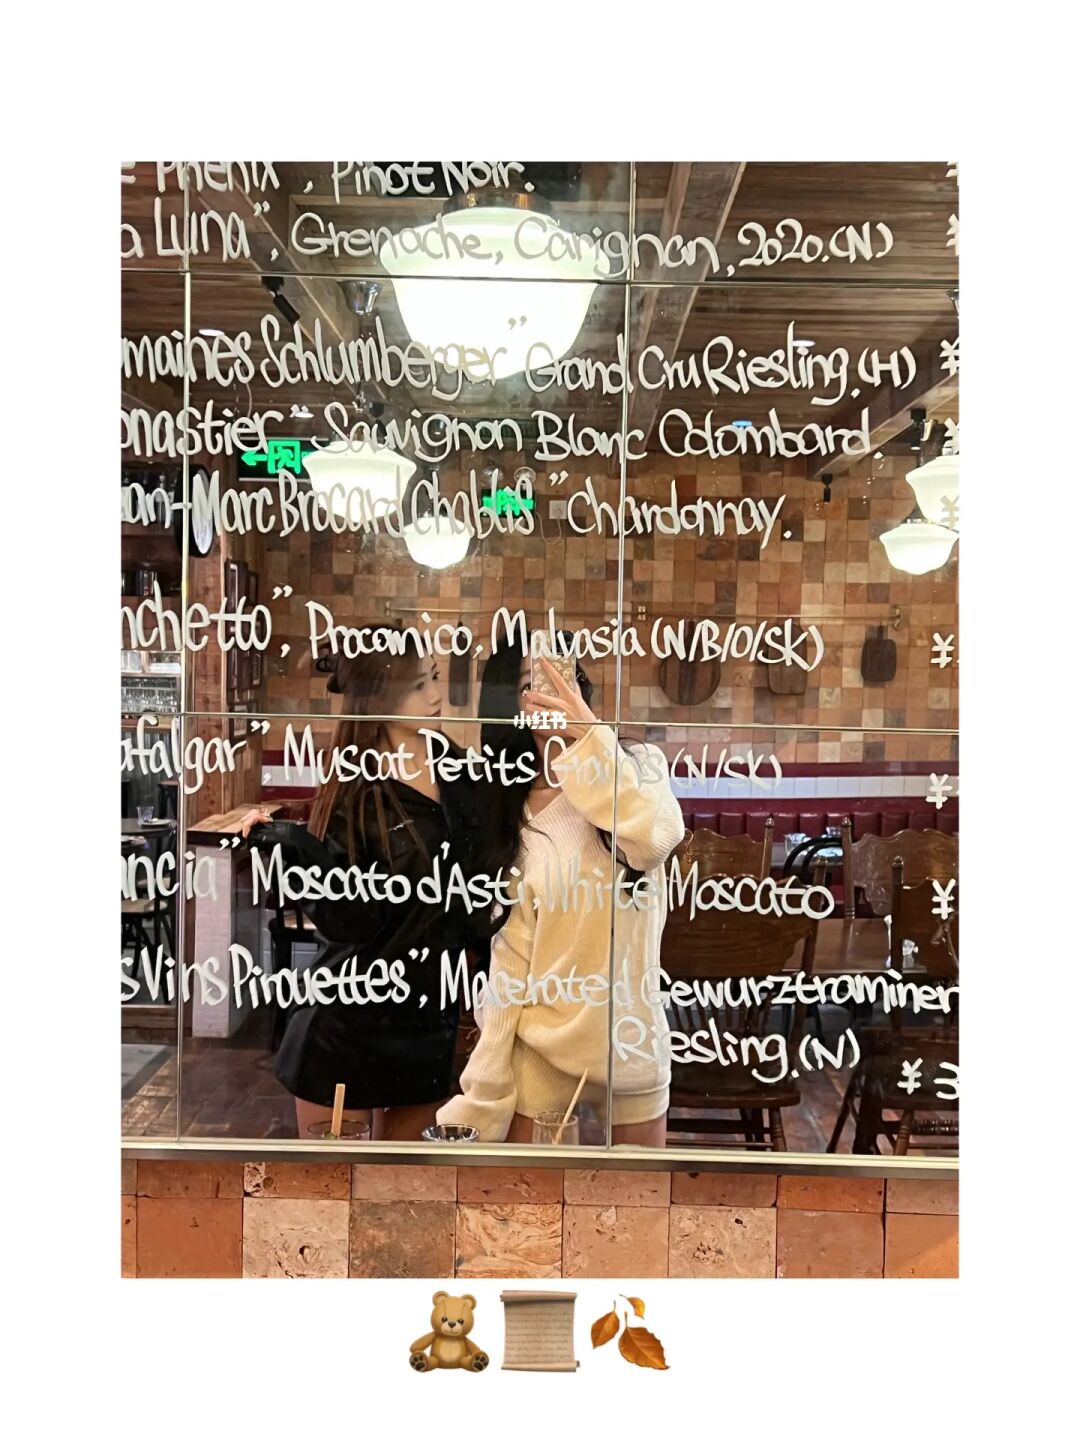 Phenix", Pinot Noir.
a Luna", Grenache, Carignan, 2020.(N) ¥
maines Schlumberger" Grand Cru Riesling.(H) ¥
onastier" Sauvignon Blanc Colombard. ¥
an-Marc Brocard Chablis" Chardonnay. ¥
nchetto", Procanico, Malvasia (N/B/O/SK) ¥
小红书
afalgar", Muscat Petits Grains (N/SK) ¥
ancia" Moscato d'Asti, White Moscato ¥
s Vins Pirouettes", Macerated Gewurztraminer
Riesling.(N)
¥ 3